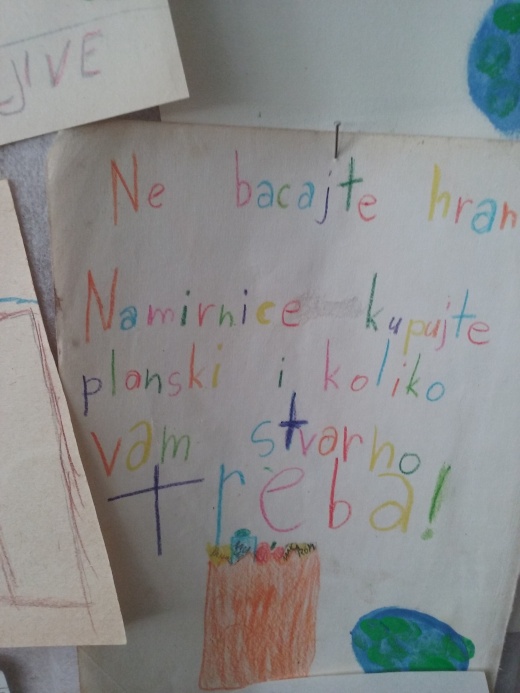 JIVE
Ne bacajte hran
Namirnice kupujte
planski i koliko
vam stvarno
treba!